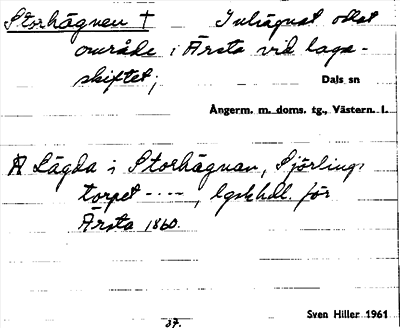 Storhägnen † Inhägnat odlat
område i Årsta vid laga-
skiftet;
Dals sn
Ångerm. m. doms. tg., Västern. l.
A Lägda i Storhägnan, Sjörlings
torpet -·-·-, lgskhdl. för
Årsta 1860.
37.
Sven Hiller 1961